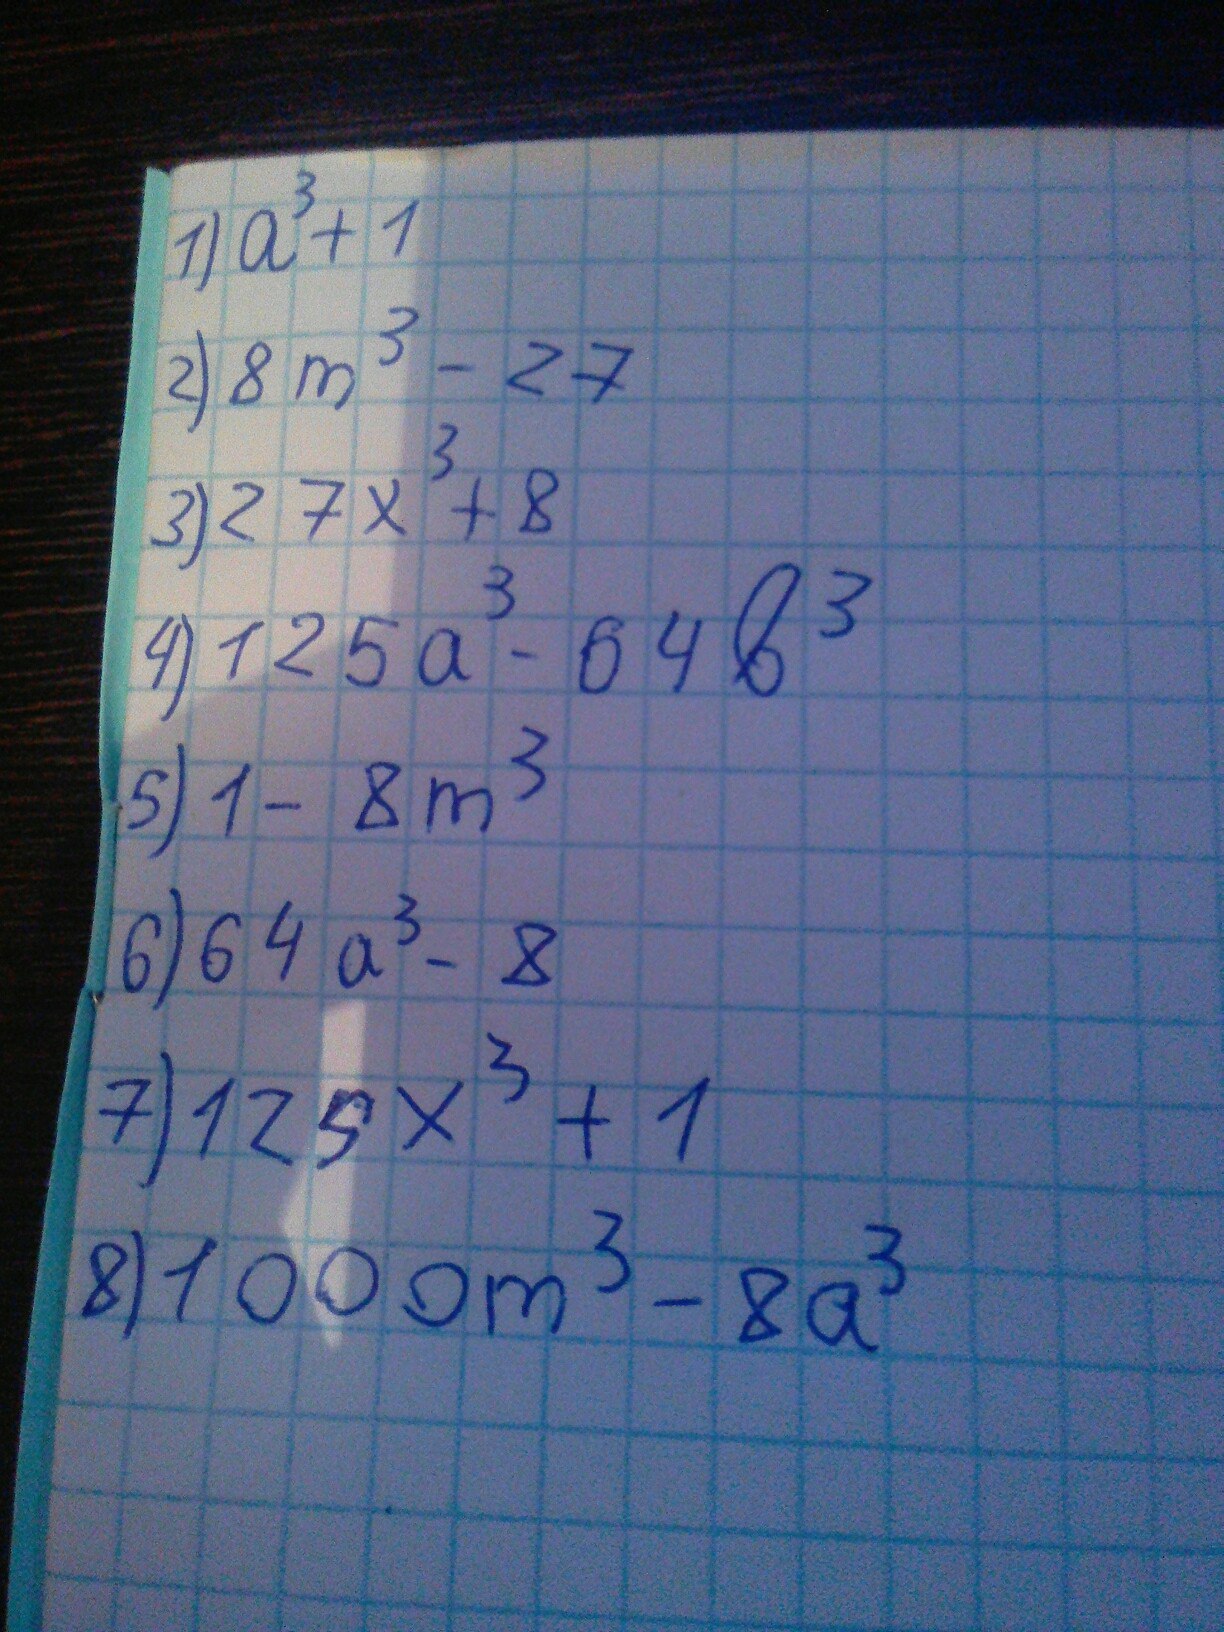 1) a³ + 1
2) 8m³ - 27
3) 27x³ + 8
4) 125a³ - 64b³
5) 1 - 8m³
6) 64a³ - 8
7) 125x³ + 1
8) 1000m³ - 8a³